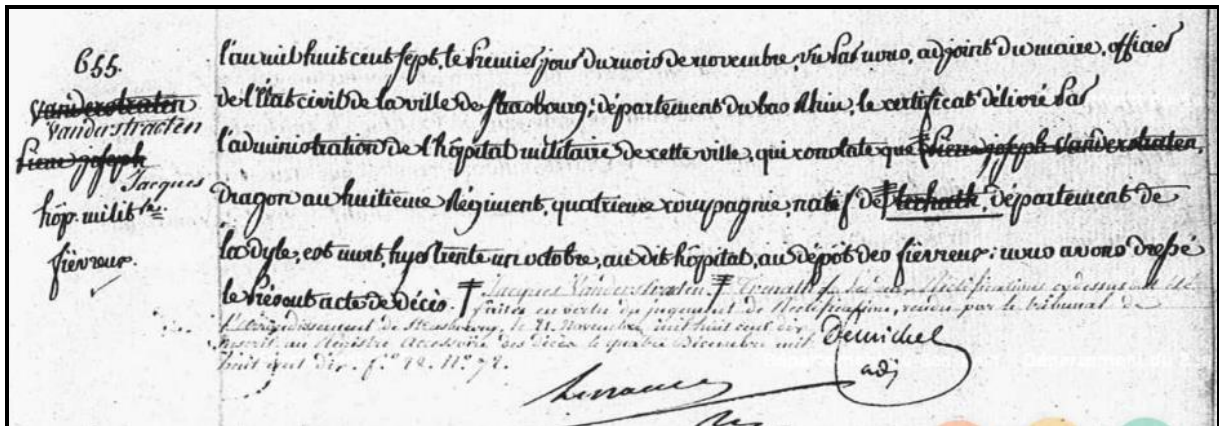 655.
Vanderstraten
Vanderstracten
Pierre joseph
Jacques
hôp. milit.re
fiévreux.
l'an mil huit cent sept, le Premier jour du mois de novembre, vu Par nous, adjoint du maire, officier
de l'État civil de la ville de Strasbourg, département du bas Rhin, le certificat délivré Par
l'administration de l'hôpital militaire de cette ville, qui constate que Pierre joseph Vanderstraten,
Dragon au huitieme Régiment, quatrieme compagnie, natif de, département de
la Dyle, est mort, hyer trente un octobre, au dit hôpital, au dépôt des fiévreux: nous avons dressé
le Présent acte de décès. Jacques Vanderstracten. les deux Rectifications ci-dessus ont été
faites en vertu du jugement de Rectification, rendu par le tribunal de
l'arrondissement de Strasbourg, le 21 Novembre mil huit cent dix
Inscrit au Registre des décès le quatre Décembre mil
huit cent dix. f.o 12. N.o 72.
Demichel
adj